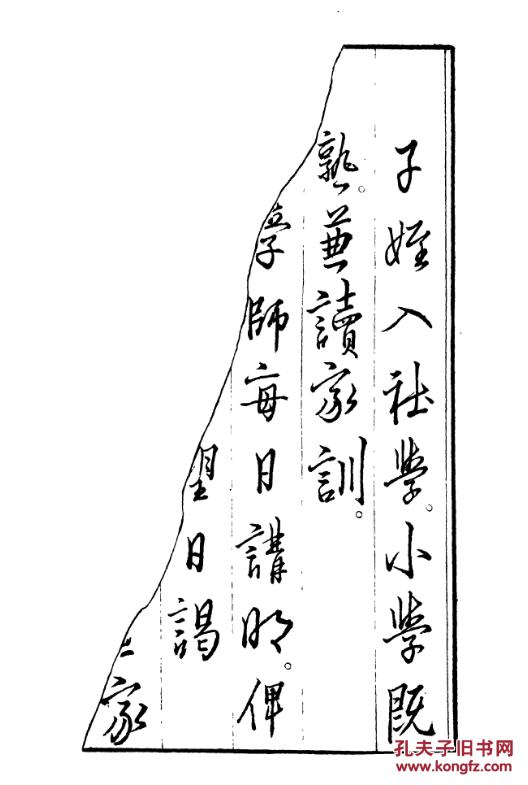 子姪入社學。小學既
熟。兼讀家訓。
學師每日講明。俾
日謁
家
孔夫子旧书网
www.kongfz.com